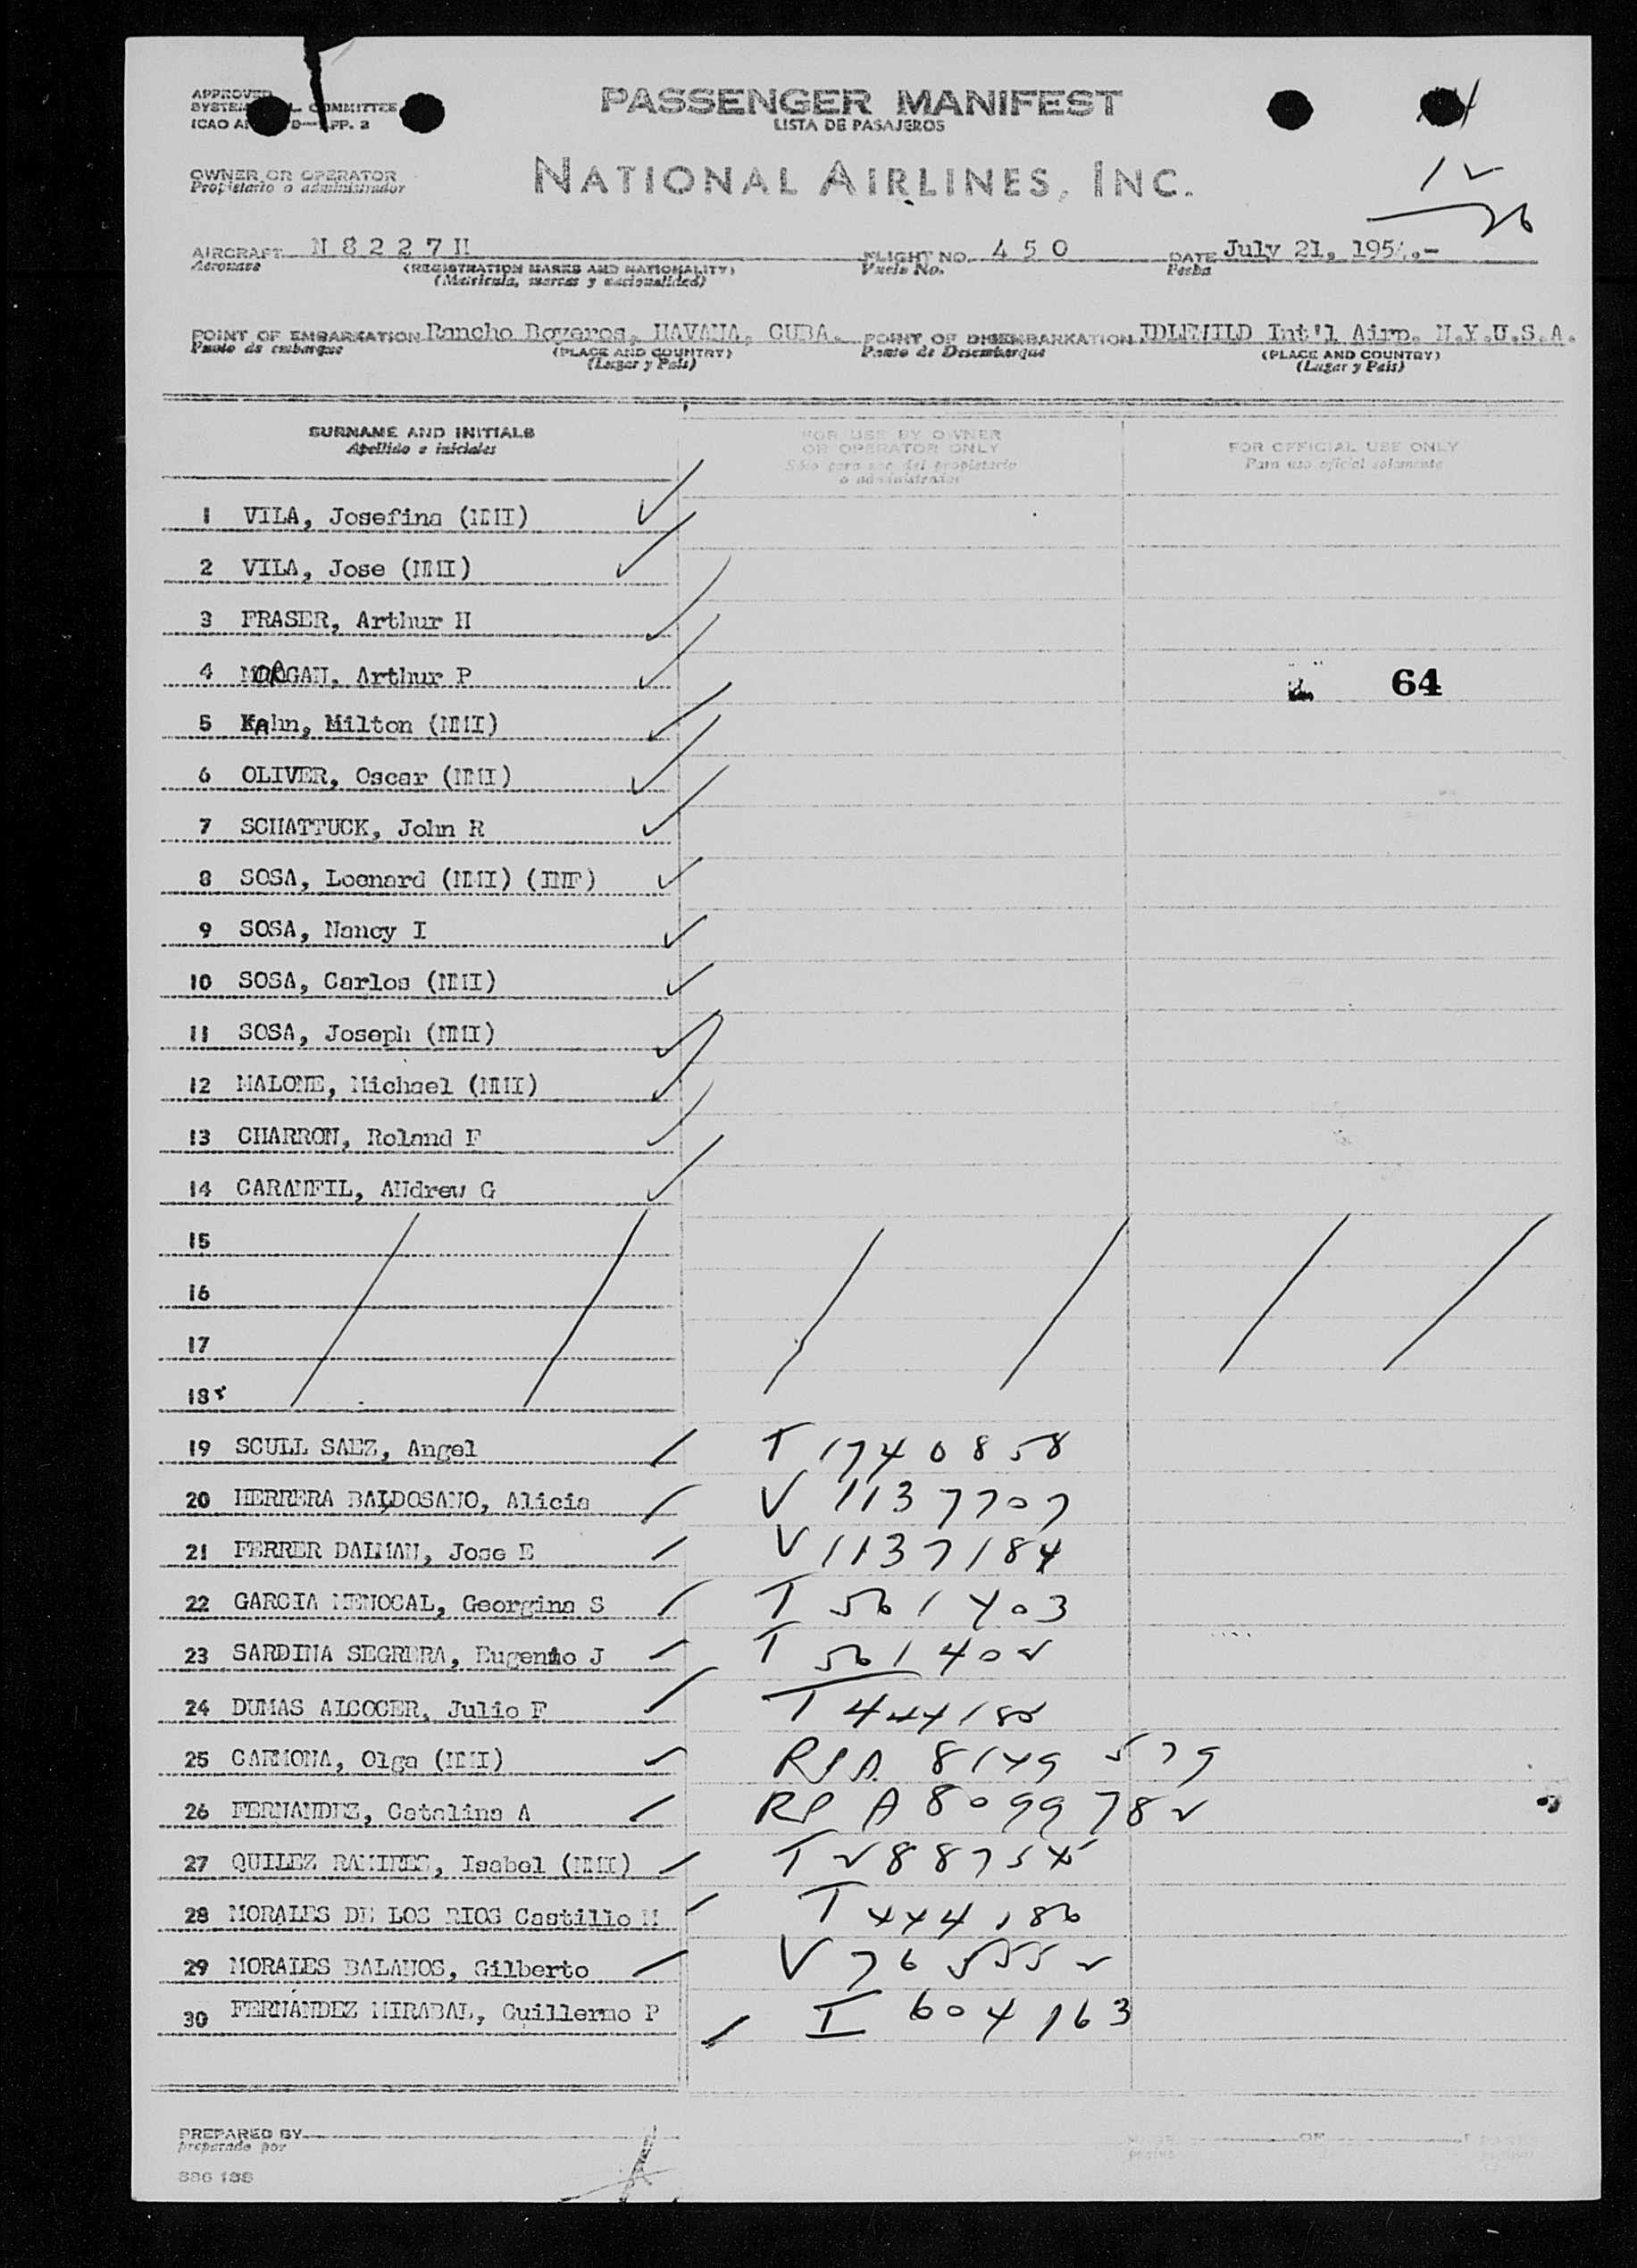 APPROVED
COMMITTEE
PASSENGER MANIFEST
LISTA DE PASAJEROS
OWNER OR OPERATOR
Propietario o administrador
NATIONAL AIRLINES, INC.
AIRCRAFT N 8 2 2 7 H FLIGHT NO. 4 5 0 DATE July 21, 195
Aeronave (REGISTRATION MARKS AND NATIONALITY) Vuelo No. Fecha
(Matricula, marcas y nacionalidad)
POINT OF EMBARKATION Rancho Boyeros, HAVANA, CUBA. POINT OF DISEMBARKATION IDLEWILD Int'l Airp. N.Y.U.S.A.
Punto de embarque (PLACE AND COUNTRY) Punto de Desembarque (PLACE AND COUNTRY)
(Lugar y Pais) (Lugar y Pais)
SURNAME AND INITIALS FOR USE BY OWNER OR OPERATOR ONLY FOR OFFICIAL USE ONLY
Apellido e iniciales Sólo para uso del propietario o administrador Para uso oficial solamente
1 VILA, Josefina (NMI)
2 VILA, Jose (NMI)
3 FRASER, Arthur H
4 MORGAN, Arthur P 64
5 KAhn, Milton (NMI)
6 OLIVER, Oscar (NMI)
7 SCHATTUCK, John R
8 SOSA, Loenard (NMI) (INF)
9 SOSA, Nancy I
10 SOSA, Carlos (NMI)
11 SOSA, Joseph (NMI)
12 MALONE, Michael (NMI)
13 CHARRON, Roland F
14 CARANFIL, ANdrew G
15
16
17
18
19 SCULL SAEZ, Angel T 1740858
20 HERRERA BALDOSANO, Alicia V 1137707
21 FERRER DALMAU, Jose E V 1137184
22 GARCIA MENOCAL, Georgina S T 561403
23 SARDINA SEGRERA, Eugenio J T 561402
24 DUMAS ALCOCER, Julio F T 444185
25 CARMONA, Olga (NMI) RPA 8149 579
26 FERNANDEZ, Catalina A RP A 8099782
27 QUILEZ RAMIRES, Isabel (NMI) T 288754
28 MORALES DE LOS RIOS Castillo M T 444186
29 MORALES BALANOS, Gilberto V 765552
30 FERNANDEZ MIRABAL, Guillermo P I 604163
PREPARED BY OF
preparado por